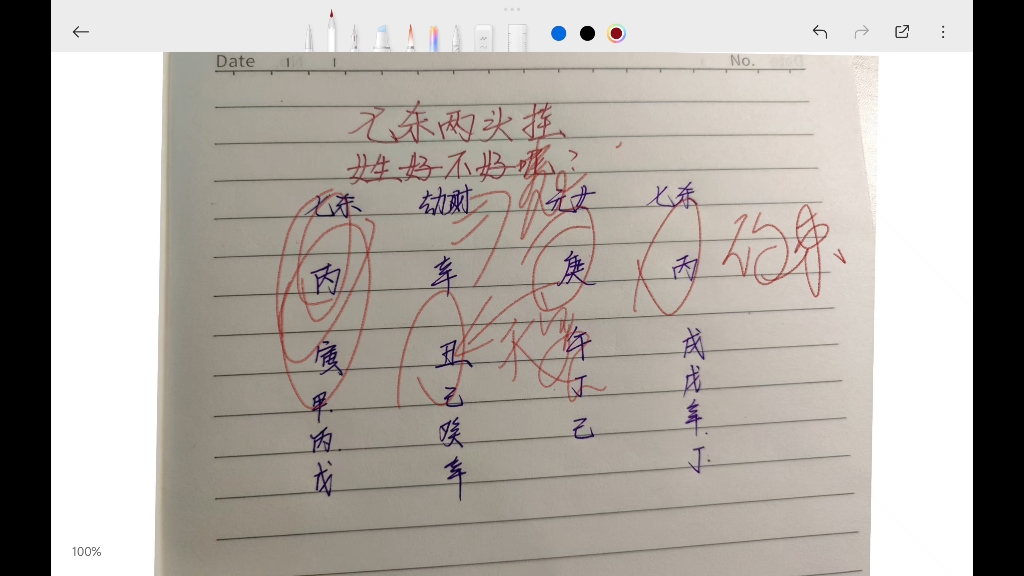 Date No.
七杀两头挂
姓好不好呢?
七杀 劫财 元女 七杀
丙 辛 庚 丙
寅 丑 午 戌
甲 己 丁 戊
丙 癸 己 辛
戊 辛 丁
100%